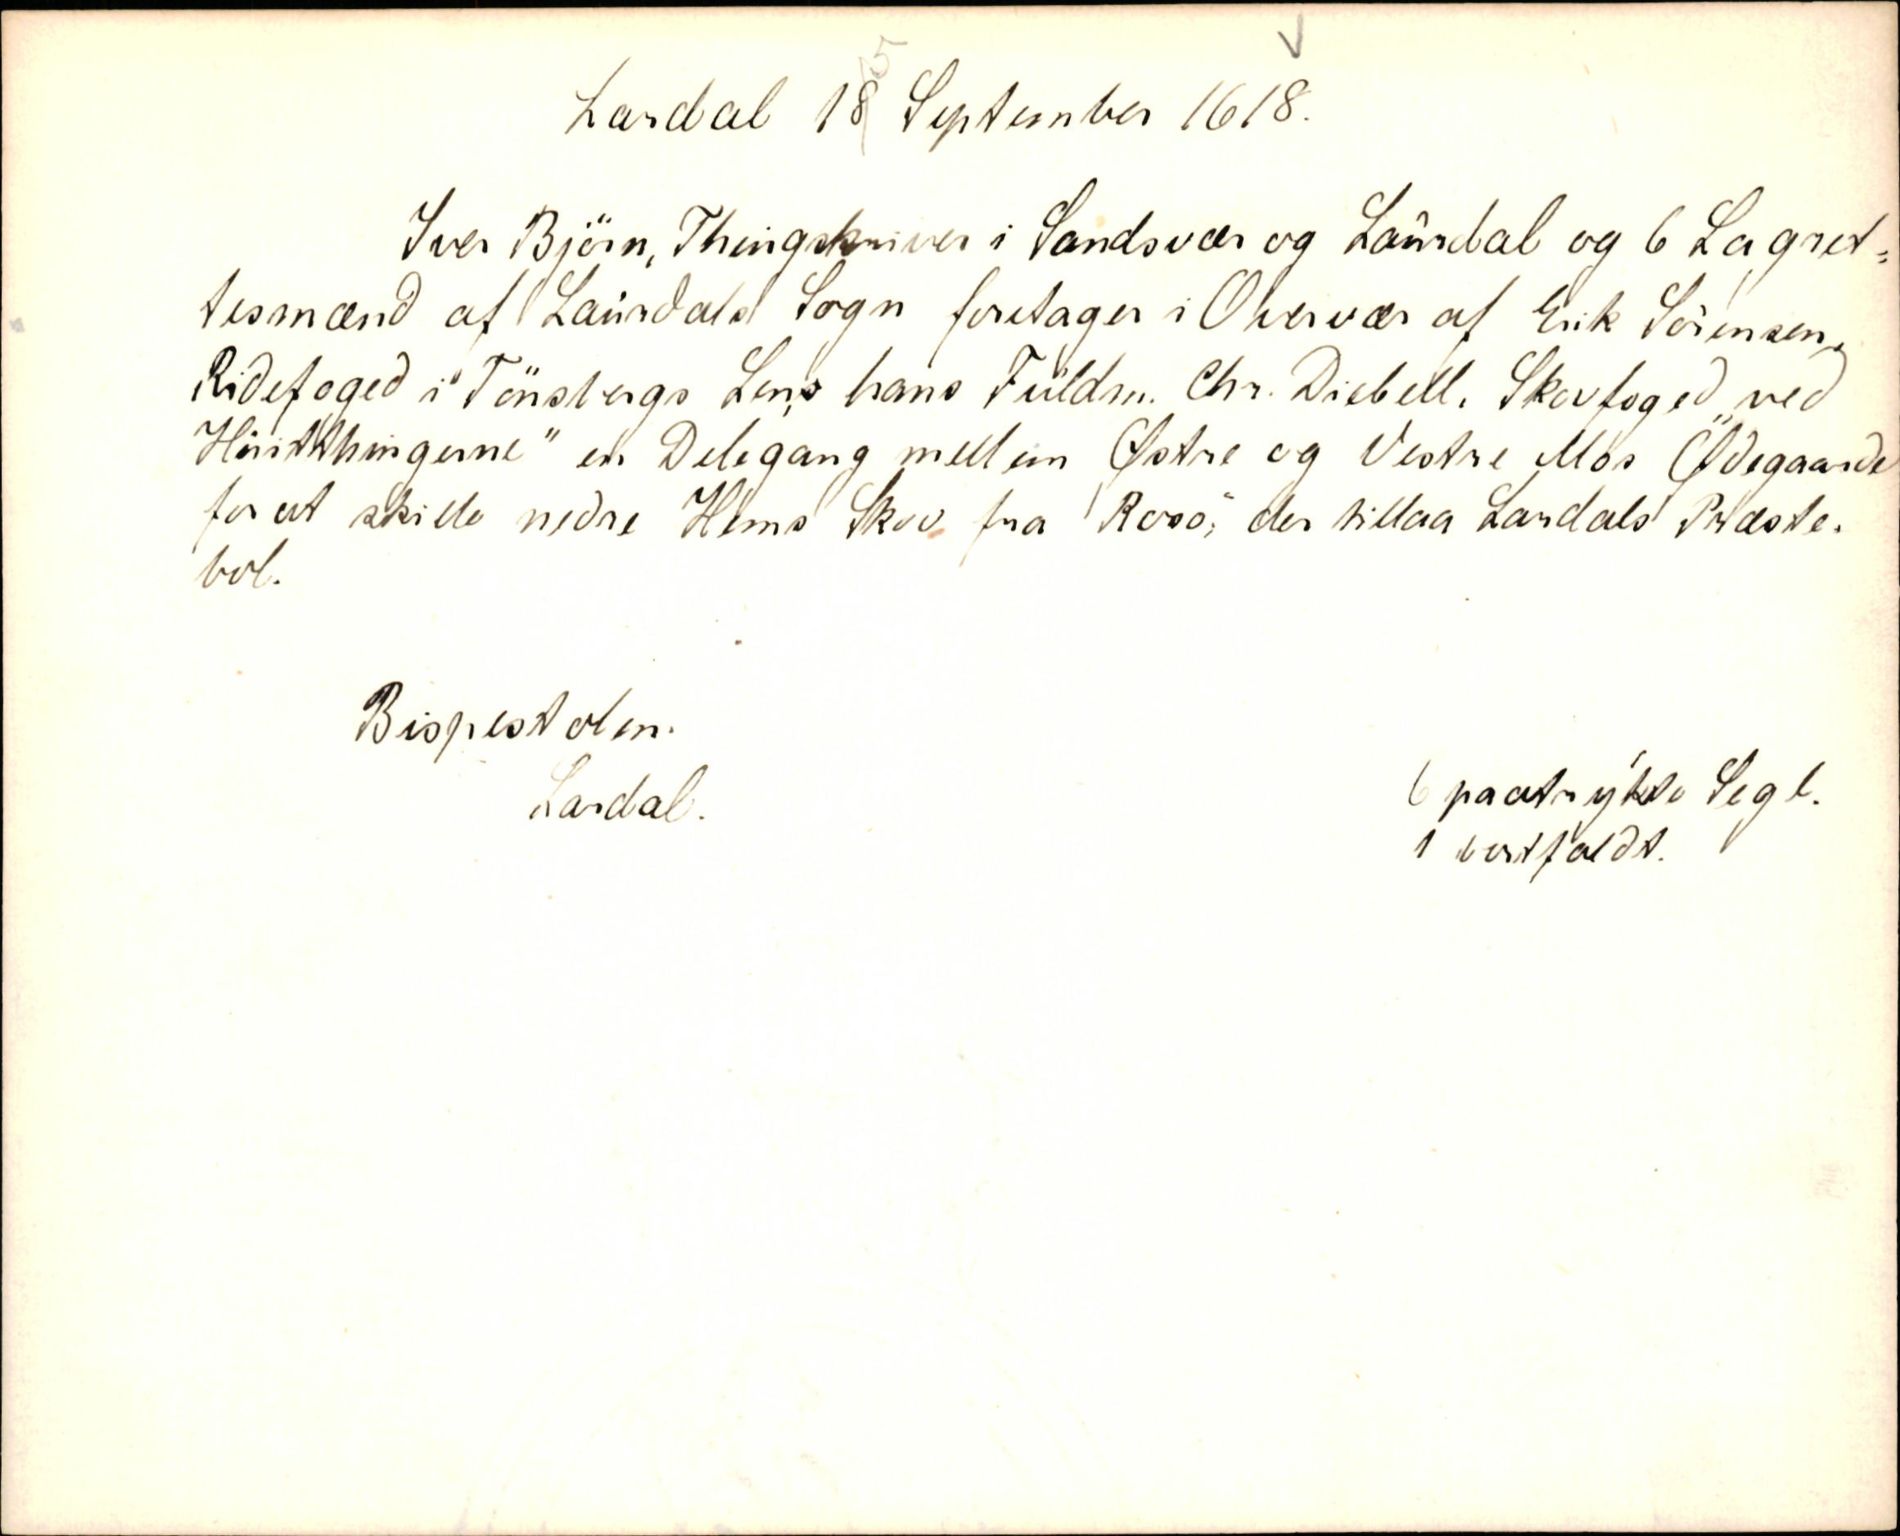 Lardal 18 September 1618.
5
Iver Björn, Thingskriver i Sandsvær og Laurdal og 6 Lagret-
tesmænd af Laurdals Sogn foretager i Overvær af Erik Sörensen,
Ridefoged i Tönsbergs Len, hans Fuldm. Chr. Diebell, Skovfoged „ved
Hintthingerne" en Delegang mellem Østre og Vestre Mos Ødegaarde
for at skille nedre Hems Skov fra Rosö, der tillaa Lardals Præste-
bol.
Bispestolen.
Lardal.
6 paatrykte Segl.
1 bortfaldt.